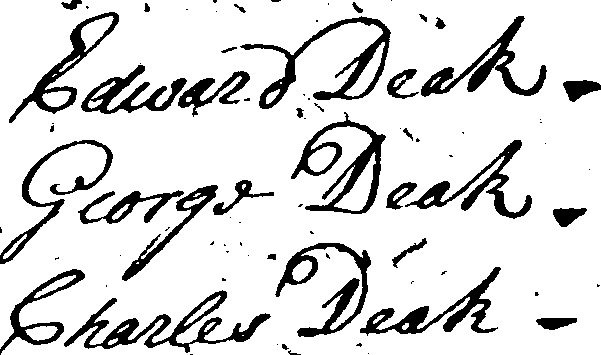 Edward Deak -
George Deak -
Charles Deak -